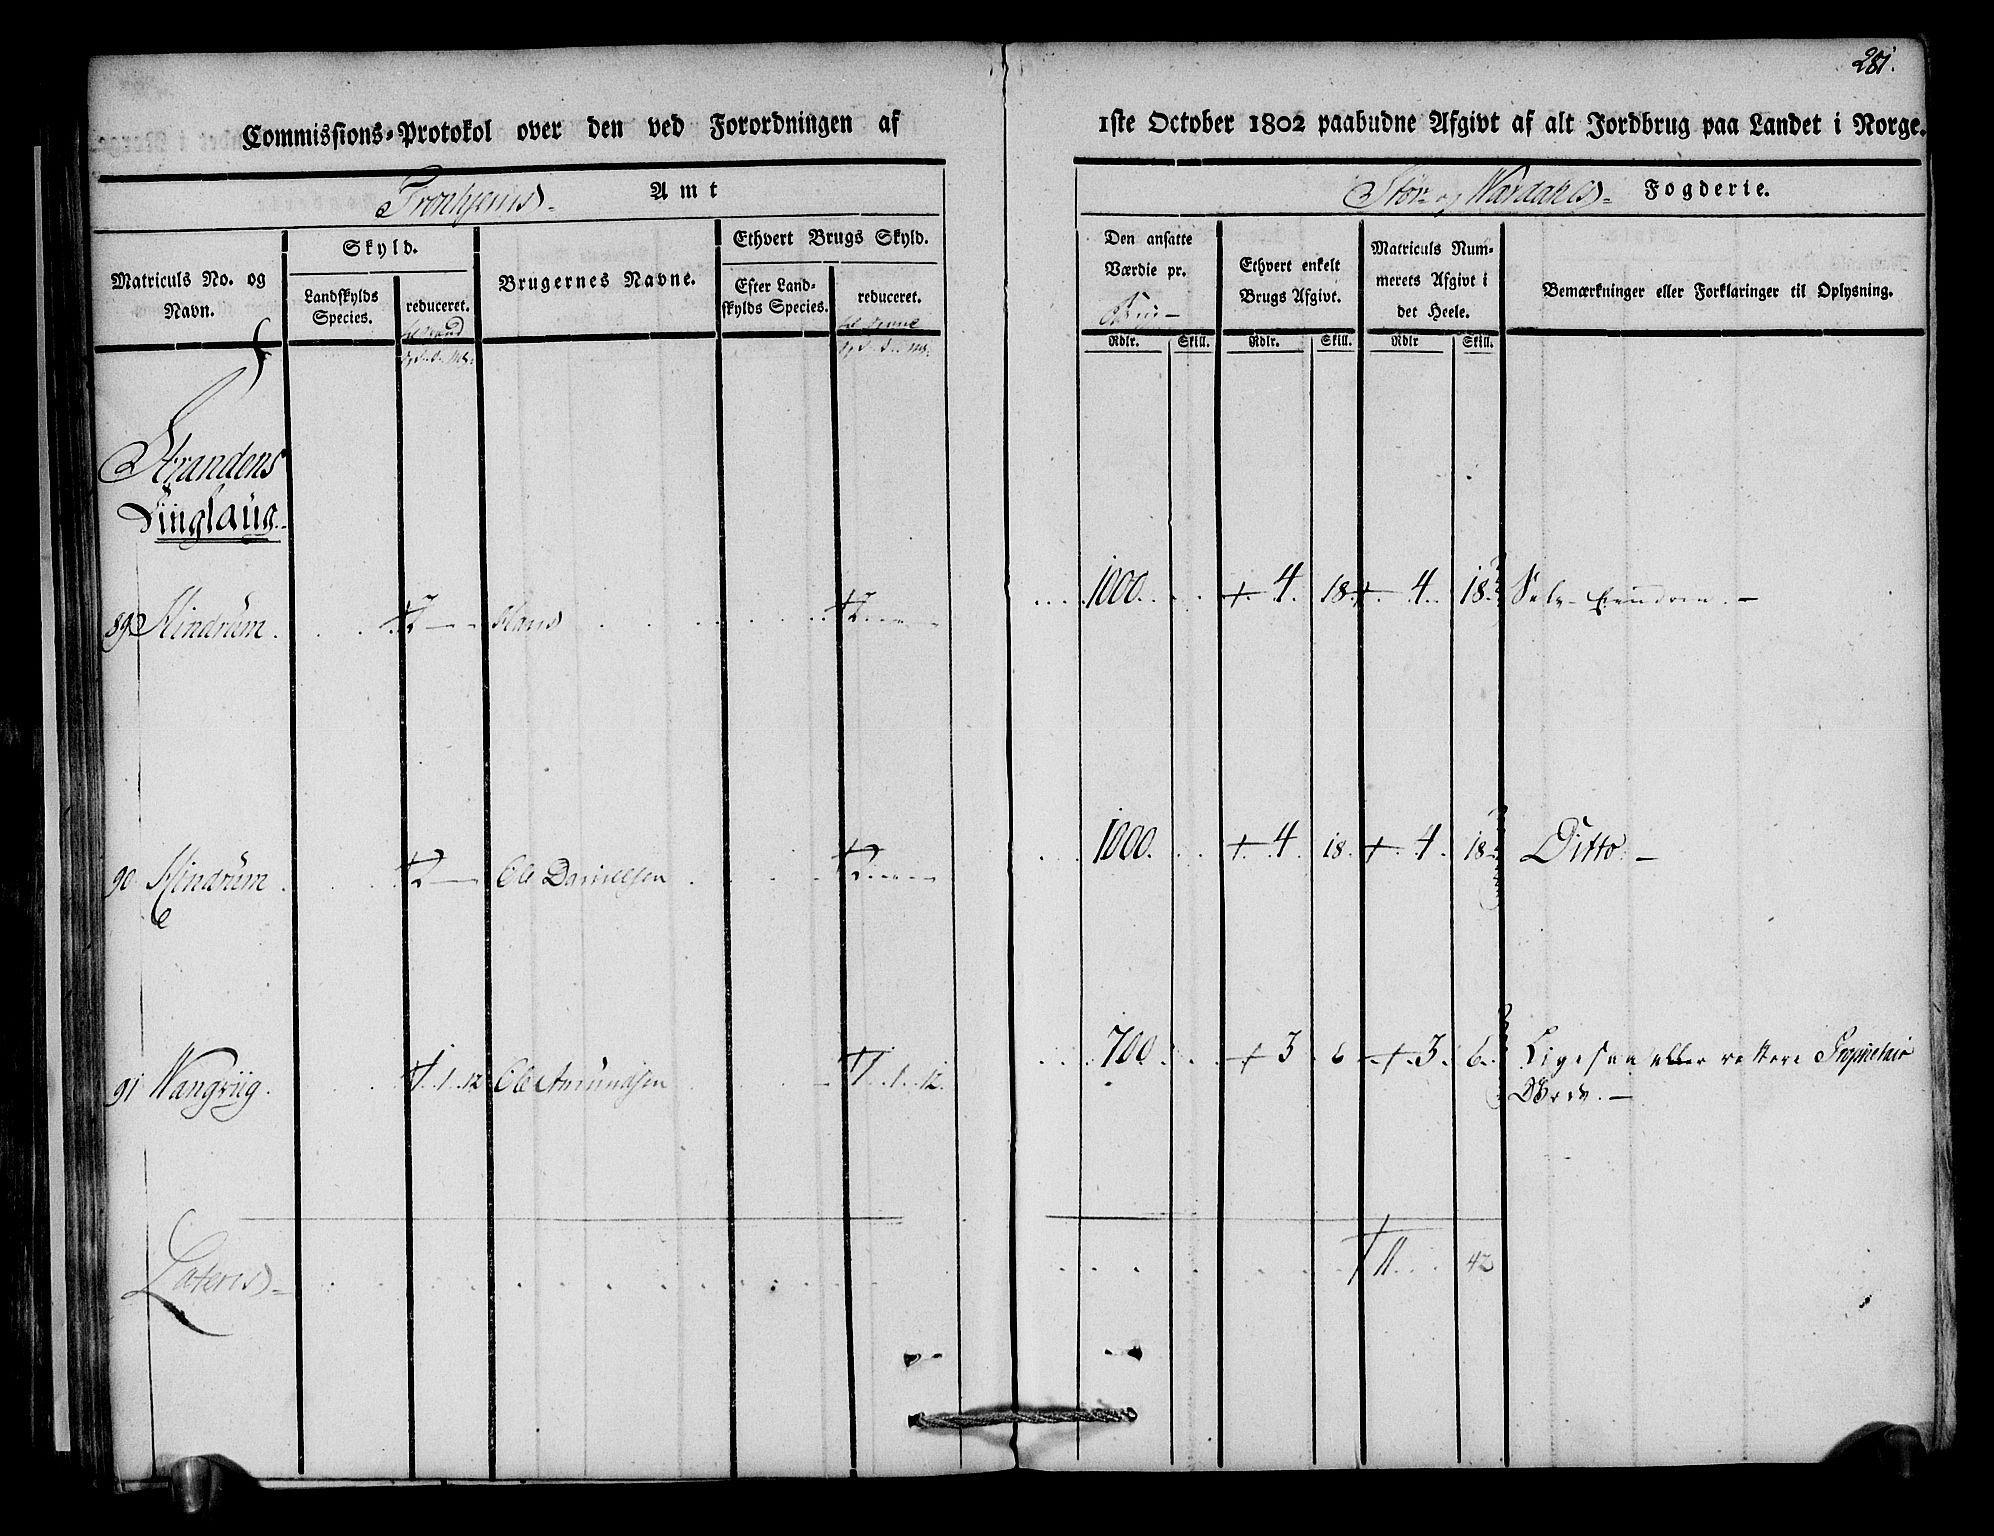 281.
Commissions-Protokol over den ved Forordningen af 1ste October 1802 paabudne Afgivt af alt Jordbrug paa Landet i Norge.
Tronhjems Amt
Stör- og Værdahls Fogderie.
Matriculs No. og Navn.
Skyld.
Landskylds Species.
reduceret.
Brugernes Navne.
Ethvert Brugs Skyld.
Efter Landskylds Species.
reduceret.
Den ansatte Værdie pr.
Ethvert enkelt Brugs Afgivt.
Matriculs Nummerets Afgivt i det Heele.
Bemærkninger eller Forklaringer til Oplysning.
Rdlr. Skill. Rdlr. Skill. Rdlr Skill.
Strandens
Tinglaug
89 Hindrüm 2 Hans 2 1000 4 18 4 18 Selv-Eiendom.
90 Hindrüm 2 Ole Danielsen 2 1000 4 18 4 18 Ditto.
91 Wangviig 1 1 12 Ole Amundsen 1 1 12 700 3 6 3 6 Ligesaa eller rettere Proprietair
Lateris 11 42